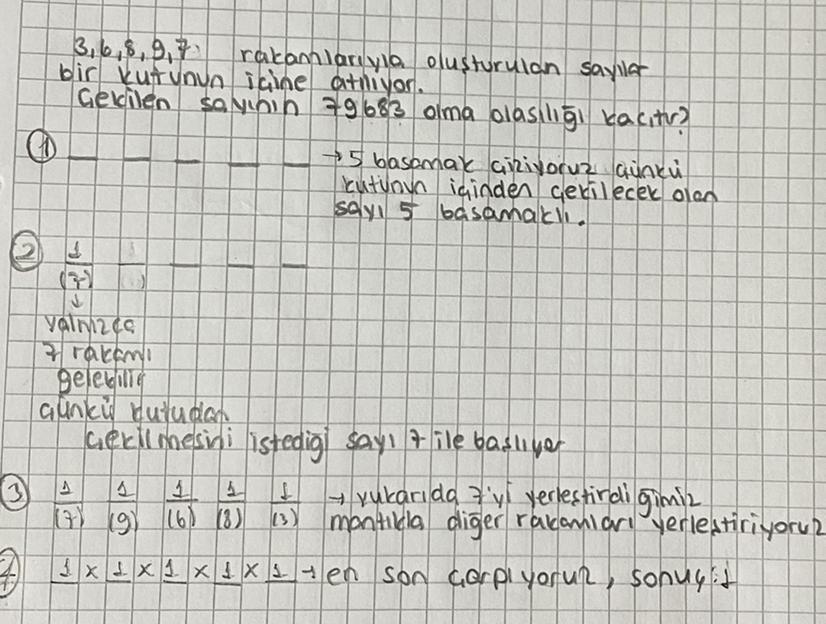 3,6,8,9,7 rakamlarıyla oluşturulan sayılar
bir kutunun içine atılıyor.
Çekilen sayının 79683 olma olasılığı kaçtır?
① _ _ _ _ _ → 5 basamak çiziyoruz çünkü
kutunun içinden çekilecek olan
sayı 5 basamaklı.
② 1 _ _ _ _
(7)
↓
yalnızca
7 rakamı
gelebilir
çünkü kutudan
çekilmesini istediği sayı 7 ile başlıyor
③ 1 1 1 1 1 → yukarıda 7'yi yerleştirdiğimiz
(7) (9) (6) (8) (3) mantıkla diğer rakamları yerleştiriyoruz
4 1 x 1 x 1 x 1 x 1 → en son çarpıyoruz, sonuç:1